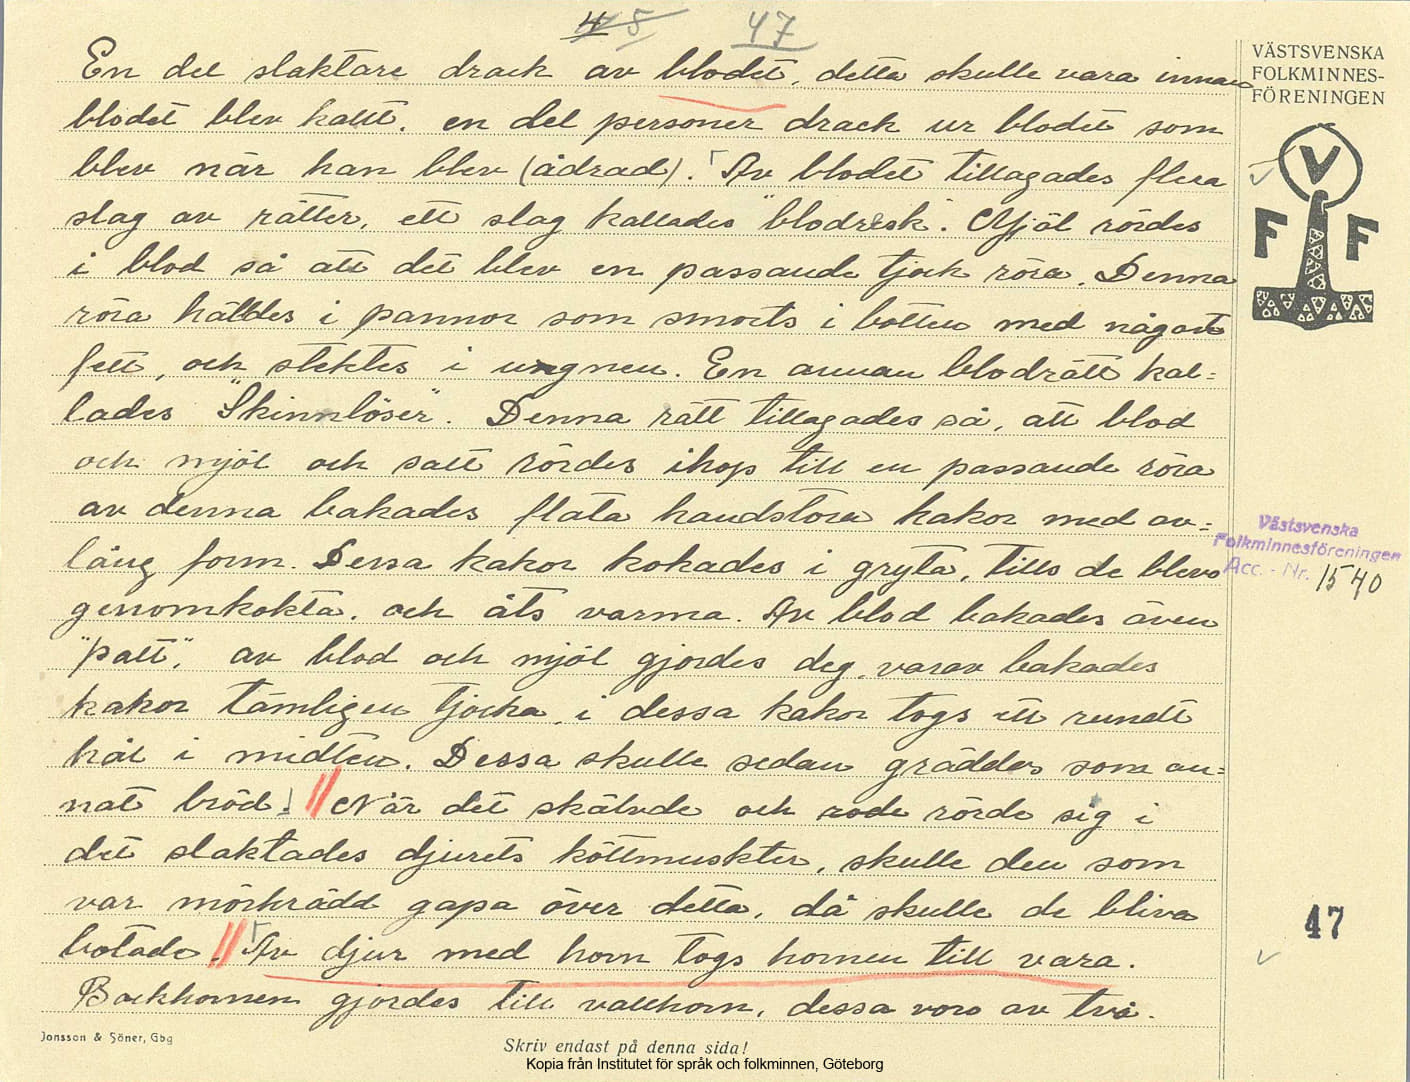 4 5 47
En del slaktare drack av blodet, detta skulle vara innan
blodet blev kallt. en del personer drack ur blodet som
blev när han blev (ådrad). Av blodet tillagades flera
slag av rätter, ett slag kallades "blodresk". Mjöl rördes
i blod så att det blev en passande tjock röra. Denna
röra hälldes i pannor som smorts i botten med något
fett, och stektes i ungnen. En annan blodrätt kal=
lades "Skinnlöser". Denna rätt tillagades så, att blod
och mjöl och salt rördes ihop till en passande röra
av denna bakades flata handstora kakor med av=
lång form. Dessa kakor kokades i gryta, tills de blevo
genomkokta. och åts varma. Av blod bakades även
"palt", av blod och mjöl gjordes deg, varav bakades
kakor tämligen tjocka, i dessa kakor togs ett rundt
hål i midten. Dessa skulle sedan gräddes som an=
nat bröd. När det skälvde och rörde sig i
det slaktades djurets köttmuskler, skulle den som
var mörkrädd gapa över detta, då skulle de bliva
botade. Av djur med horn togs hornen till vara.
Bockhornen gjordes till vallhorn, dessa voro av två.
VÄSTSVENSKA
FOLKMINNES-
FÖRENINGEN
V
F F
Västsvenska
Folkminnesföreningen
Acc. - Nr. 1540
47
Jonsson & Söner, Gbg
Skriv endast på denna sida!
Kopia från Institutet för språk och folkminnen, Göteborg